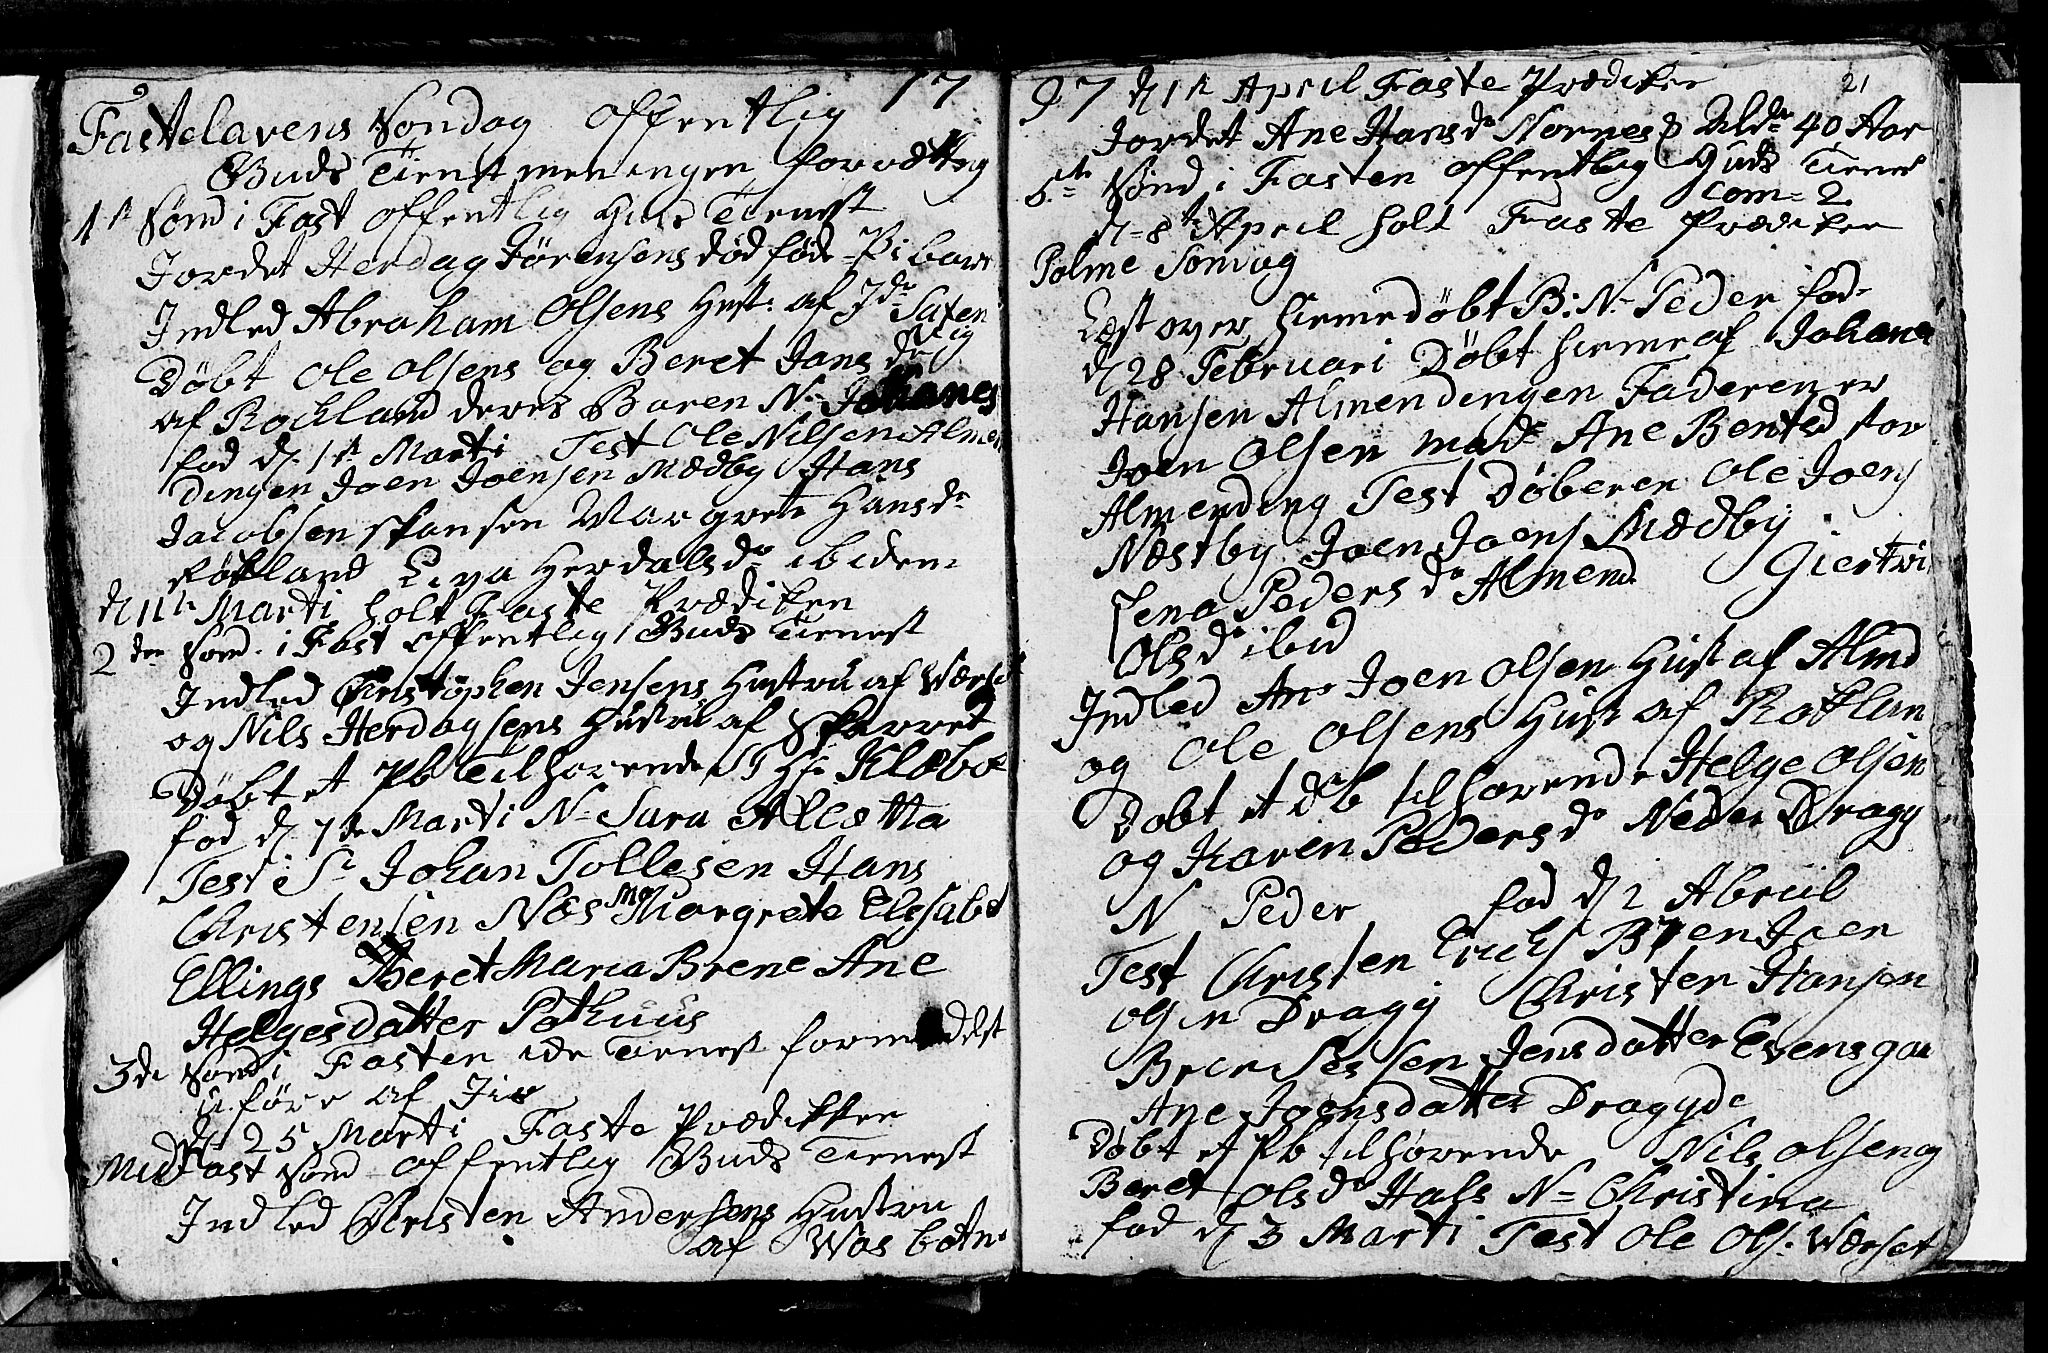 17
Fastelavens Søndag offentlig
Guds Tienst meningen forrættes
1te Sønd i Fast offentlig Guds Tienest
Jordet Herdag Jørgensens dødføde Pi barn
Indled Abraham Olsens Hust: af Ide Saxenvig
Døbt Ole Olsens og Beret Jans dr
af Rochland deres Baren N: Johanes
fød d 1te Marti Test Ole Nilsen Almen
dingen Joen Joensen Mædby Hans
Jacobsen skansen Margrete Hansdr
Røkland Lisa Herdalsdr ibidem
d 11te Marti holt Faste Prædiken
2den Sønd. i Fast offentlig Guds Tienest
Indled Christophen Jensens Hustru af Wærset
og Nils Herdagsens Hustru af Skarret
Døbt et Pb Tilhørende Sr Hr: Klæboe
fød d 7de Marti N: Sara Alletta
Test: Sr Johan Tollesen Hans
Christensen Næs Mad Margrete Elisabet
Ellings Beret Maria Brene Ane
Helgesdatter Pothuus
3de Sønd i Fasten ide Tienest formedelst
uføre af Jis
d 25 Marti Faste Prædikken
Midfast Sønd offentlig Guds Tienest
Indled Christen Andersens Hustru
af Wasbotn
97 d 1te April Faste Prædiken
21
Jordet Ane Hans dr Nornes Aldr 40 Aar
5te Sønd i Fasten offentlig Guds Tienest
com = 2
d = 8te April holt Faste Prædiken
Palme Søndag
Læst over hiemedøbt B: N: Peder fød
d 28 Februari Døbt hieme af Johan
Hansen Almendingen Faderen er
Joen Olsen mod: Ane Bentsd for
Almending Test Døberen Ole Joens
Næstby Joen Joens Mædby
Lena Peders dr Almend Giertru
Ols dr ibid
Indled Ane Joen Olsen Hust af Almd
og Ole Olsens Hust af Røklan
Døbt et db tilhørende Helge Olsen
og Karen Peders dr Neder Dragg
N Peder fød d 2 Abriil
Test Christen Erichs Bren Joen
Olsen Dragg Christen Hansen
Bren Sessen Jensdatter Evensgaa
Ane Joensdatter Dragyde
Døbt et Pb tilhørende Nils Olsen og
Beret Ols dr Hals N = Christina
fød d 3 Marti Test Ole Ols: Wærset